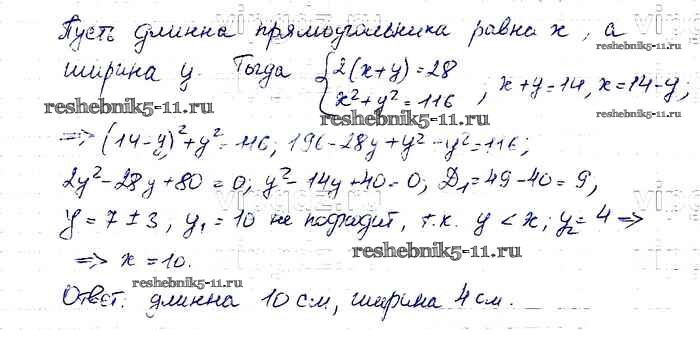 Пусть длинна прямоугольника равна x, а
ширина y. Тогда { 2(x+y)=28
x²+y²=116 , x+y=14, x=14-y;
reshebnik5-11.ru
reshebnik5-11.ru
reshebnik5-11.ru
=> (14-y)²+y²=116; 196-28y+y²-y²=116;
2y²-28y+80=0; y²-14y+40=0; D₁=49-40=9,
y=7±3; y₁=10 не подходит, т.к. y<x; y₂=4 =>
reshebnik5-11.ru
=> x=10.
reshebnik5-11.ru
Ответ: длинна 10 см, ширина 4 см.